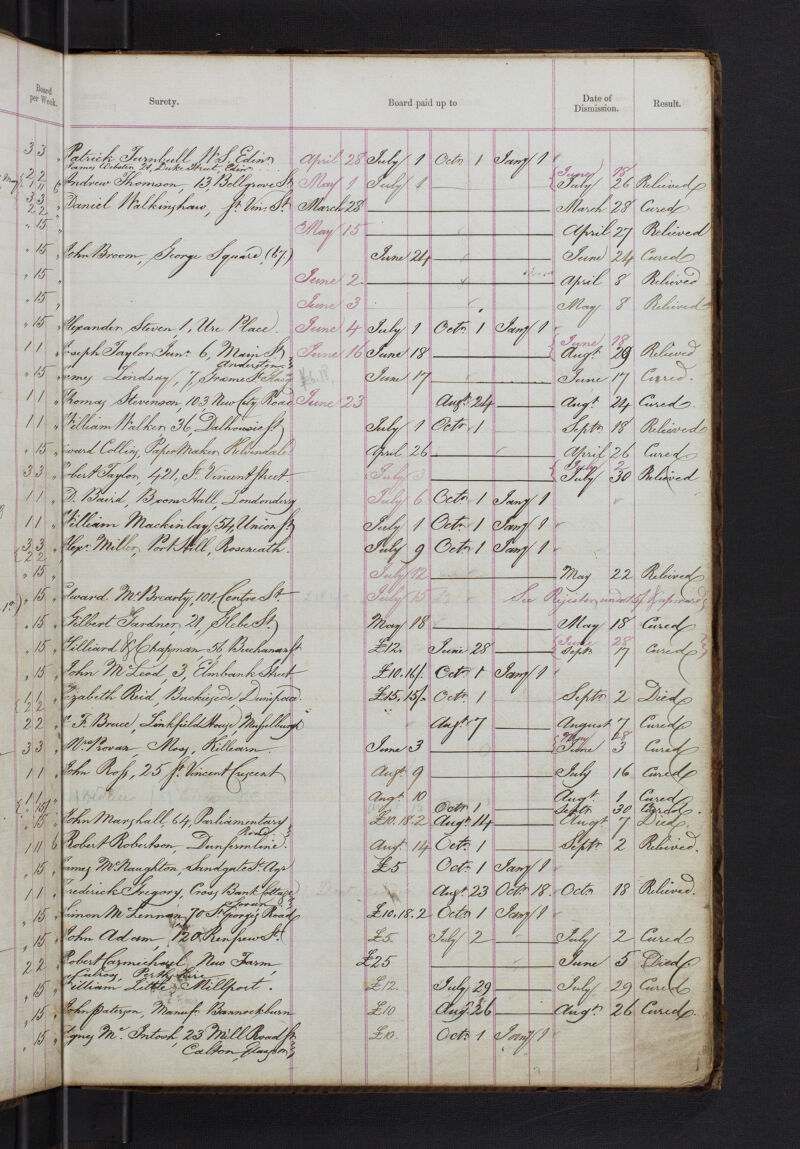 Board per Week. Surety. Board paid up to Date of Dismission. Result.
3 3 " Patrick Turnbull W.S. Edinr April 28 July 1 Octr 1 Jany 1
James Webster 21, Duke Street, Edinr June 18
2 2 11 6 Andrew Thomson, 63 Bellgrove St May 1 July 1 July 26 Relieved
3 3 2 2 " Daniel Walkinshaw, St. Vin. St. March 28 March 28 Cured
" 15 " May 15 April 27 Relieved
" 15 " John Broom, George Square, (67) June 24 June 24 Cured
" 15 " June 2 April 8 Relieved
" 15 " June 3 May 8 Relieved
" 15 " Alexander Steven 1, Ure Place. June 4 July 1 Octr 1 Jany 1
June 18
1 1 " Joseph Taylor Junr 6, Main St Anderston June 16 June 18 Augt 29 Relieved
" 15 " James Lindsay, 7, £6.18. June 17 June 17 Cured.
1 1 " Thomas Stevenson, 103 New City Road June 23 Augt 24 Augt 24 Cured
1 1 " William Walker 36, Dalhousie St July 1 Octr 1 Septr 18 Relieved
" 15 " Edward Collins, Paper Maker Kelvindale April 26 April 26 Cured
July 2
3 3 " Robert Taylor, 421, St. Vincent Street July 3 July 30 Relieved
1 1 " D. Baird Broom Hall, Londonderry July 6 Octr 1 Jany 1
1 1 " William Mackinlay, 54, Union St July 1 Octr 1 Jany 1
3 3 2 2 " Alexr Miller, Port Hill, Roseneath. July 9 Octr 1 Jany 1
" 15 " July 12 May 22 Relieved
" 15 " Edward McBrearty, 101, Centre St. July 15 See Register under 15/ & upwards
" 15 " Gilbert Gardner, 21, Glebe St. May 18 May 18 Cured
June 28
" 15 " Hilliard & Chapman 36 Buchanan St £12. June 28 Septr 7 Cured
" 15 " John McLeod, 3, Elmbank Street £10.16/. Octr 1 Jany 1
1 1 2 2 " Elizabeth Reid, Dunipace £15.15/. Octr 1 Septr 2 Died
2 2 " F. Bruce, Linkfield House, Musselburgh Augt 7 August 7 Cured
May 28
3 3 " Mrs Provan Moss, Killearn June 3 June 3 Cured
1 1 " John Ross, 25 St. Vincent Crescent Augt 9 July 16 Cured
1 1 " Augt 10 Augt 1 Cured
15/ Octr 1 Septr 30
" 15 " John Marshall, 64, Parliamentary Road £10.18.2 Augt 14 Augt 7 Died
1 11 6 Robert Robertson, Dunfermline. Augt 14 Octr 1 Septr 2 Relieved.
" 15 " James McNaughton, Sandgate St Ayr £5 Octr 1 Jany 1
1 1 " Frederick Gregory, Cross Bank Cottage Govan Augt 23 Octr 18 Octr 18 Relieved.
" 15 " Simon McLennan, 70 St. George's Road £10.18.2 Octr 1 Jany 1
" 15 " John Adam, 120, Renfrew St. £5. July 2 July 2 Cured
2 2 " Robert Carmichael, New Farm £25 June 5 Died
Culross, Perthshire
" 15 " William Little Millport. £12. July 29 July 29 Cured
" 15 " John Paterson, Manufr Bannockburn £10 Augt 26 Augt 26 Cured
" 15 " Agnes McIntosh, 23 Mill Road St £10. Octr 1 Jany 1
Calton, Glasgow